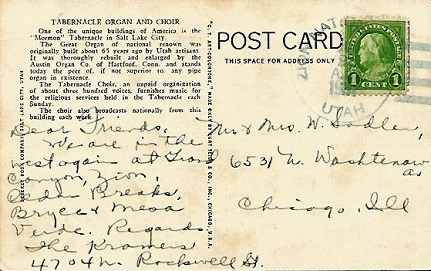 TABERNACLE ORGAN AND CHOIR
One of the unique buildings of America is the
"Mormon" Tabernacle in Salt Lake City.
The Great Organ of national renown was
originally built about 65 years ago by Utah artisans.
It was thoroughly rebuilt and enlarged by the
Austin Organ Co. of Hartford. Conn. and stands
today the peer of. if not superior to. any pipe
organ in existence.
The Tabernacle Choir, an unpaid organization
of about three hundred voices, furnishes music for
the religious services held in the Tabernacle each
Sunday.
The choir also broadcasts nationally from this
building each week.
POST CARD
THIS SPACE FOR ADDRESS ONLY
UTAH
1 CENT 1
Dear Friends,
We are in the
west again at Grand
Canyon, Zion,
Cedar Breaks,
Bryce & Mesa
Verde. Regards
The Kramers
4704 N. Rockwell St.
Mr & Mrs W. Sadler,
6531 N. Washtenaw
av
Chicago, Ill